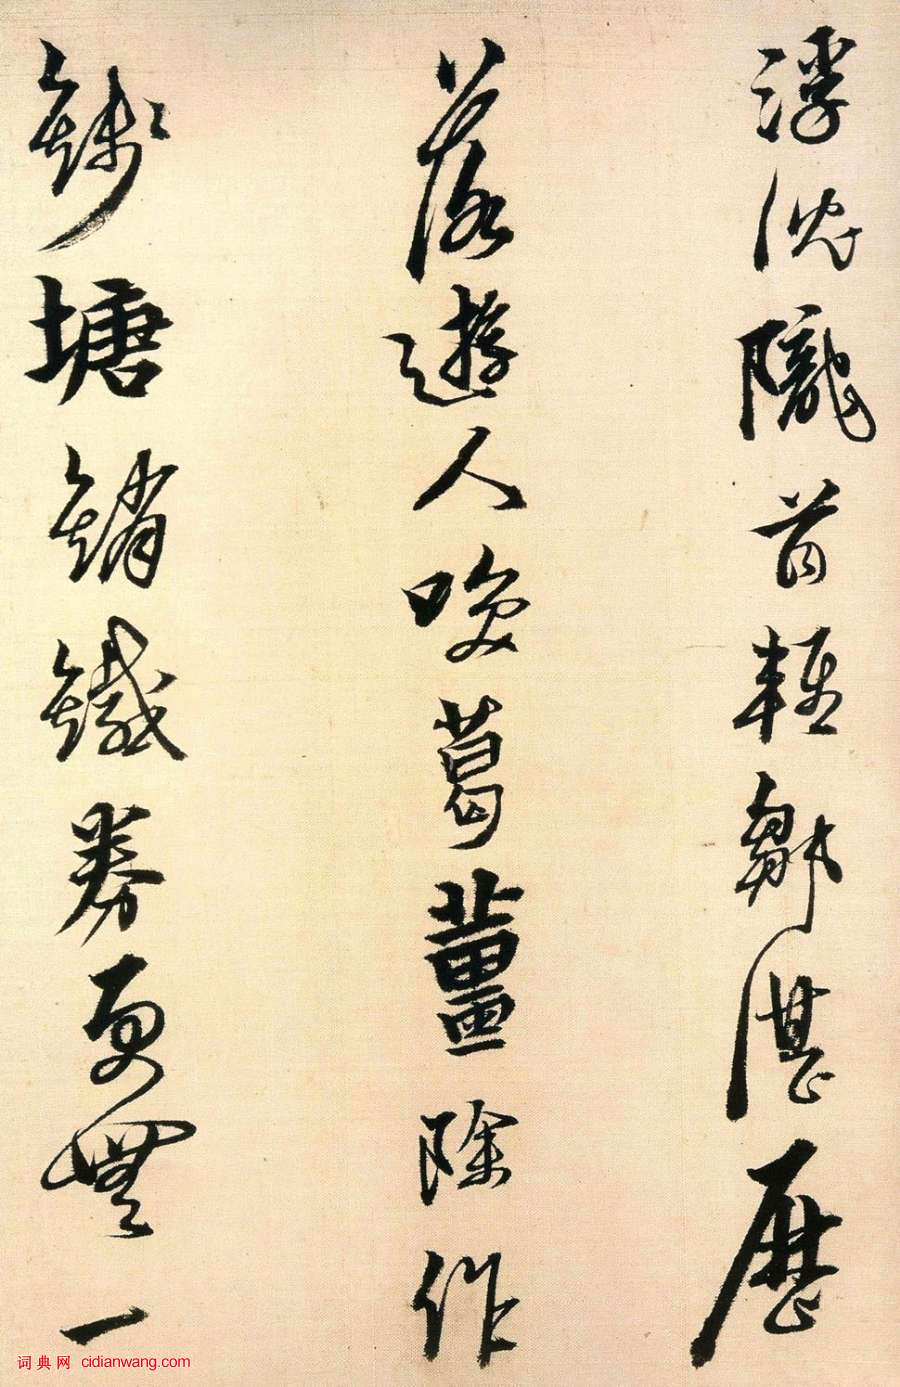 浮沈隴首輕鄒湛歷
落遊人喚葛薑除作
錢塘銷鐵券更無一
词典网 cidianwang.com